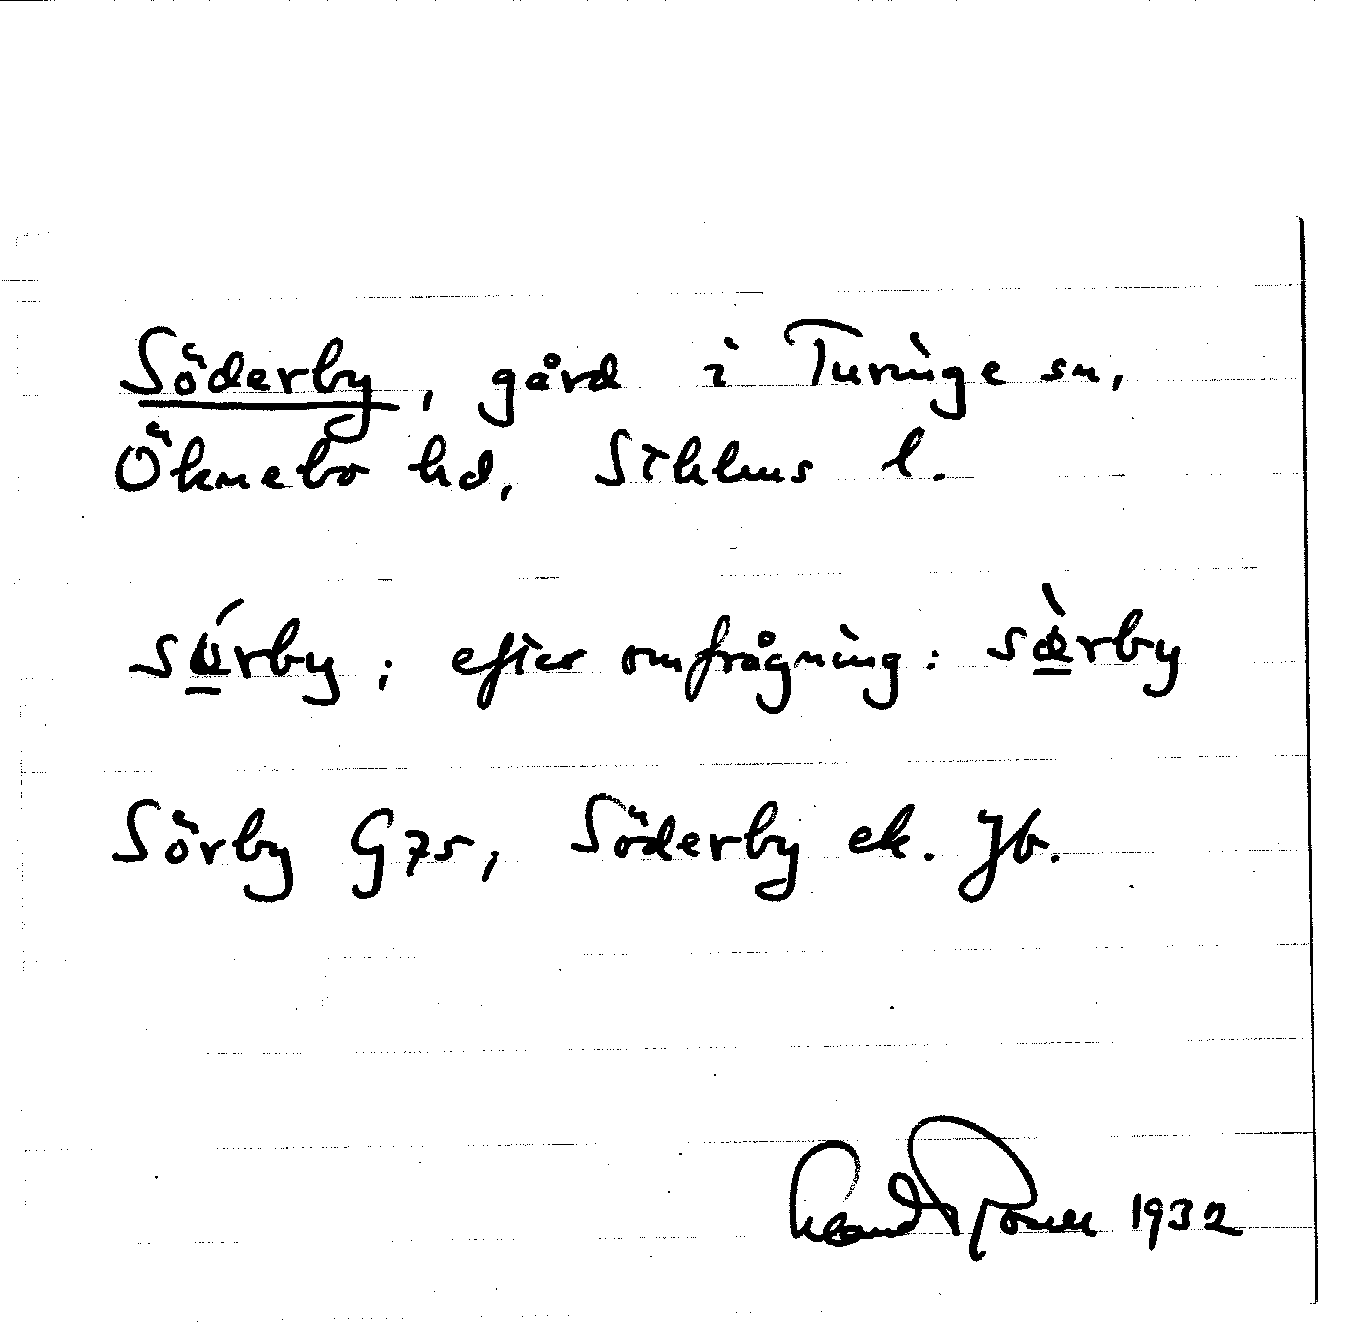 Söderby, gård i Turinge sn,
Öknebo hd, Sthlms l.
sörby; efter omfrågning: sörby
Sörby G75, Söderby ek. Jb.
1932